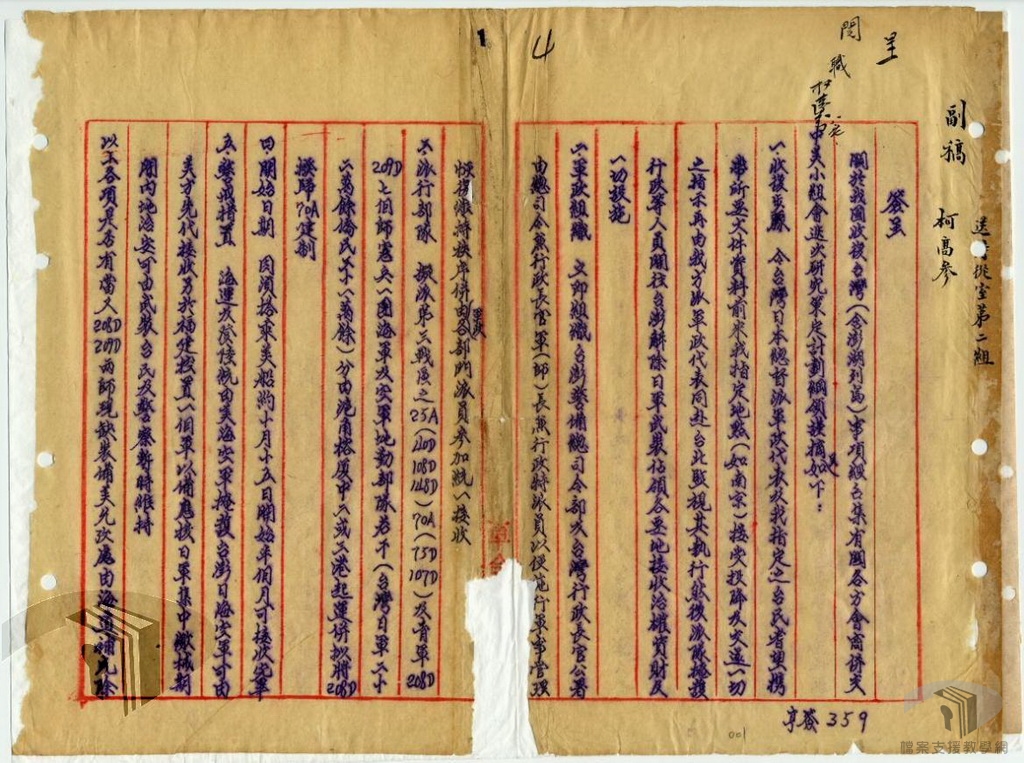 副稿
柯高參
呈
閱
職
4
1
簽呈
關於我國收復台灣(含澎湖列島)事項經召集有關各方會商併交
中美小組會迭次研究策定計劃綱領謹摘如下:
一、收復步驟 令台灣日本總督派軍政代表及我指定之台民耆望携
帶所要文件資料前來我指定地點(如南京)接受投降及交遞一切
之指示再由我方派軍政代表同赴台北監視其執行然後派隊掩護
行政等人員開拔台澎解除日軍武裝佔領各要地接收治權資財及
一切設施
二、軍政組織 立即組織台澎警備總司令部及台灣行政長官公署
由總司令兼行政長官軍(師)長兼行政特派員以便施行軍事管理
恢復維持秩序併由各部門派員參加統一接收
三、派行部隊 擬派第三戰區之25A(40D 108D 148D)70A(75D 107D)及青軍208D
209D七個師憲兵一團海軍及空軍地勤部隊若干(台灣日軍二十
六萬餘僑民三十八萬餘)分由滬甬榕廈中六或七港起運併擬將208D
撥歸70A建制
四、開始日期 因須搭乘美船約十月十五日開始半個月可接收完畢
五、警戒措置 海運及登陸統由美海空軍掩護台澎日海空軍可由
美方先代接收另於福建控置一個軍以備應援日軍集中繳械期
間內地治安可由武裝台民及警察暫時維持
以上各項是否有當又208D 209D兩師現缺裝備美允改處由海運補充除
359
001
檔案支援教學網